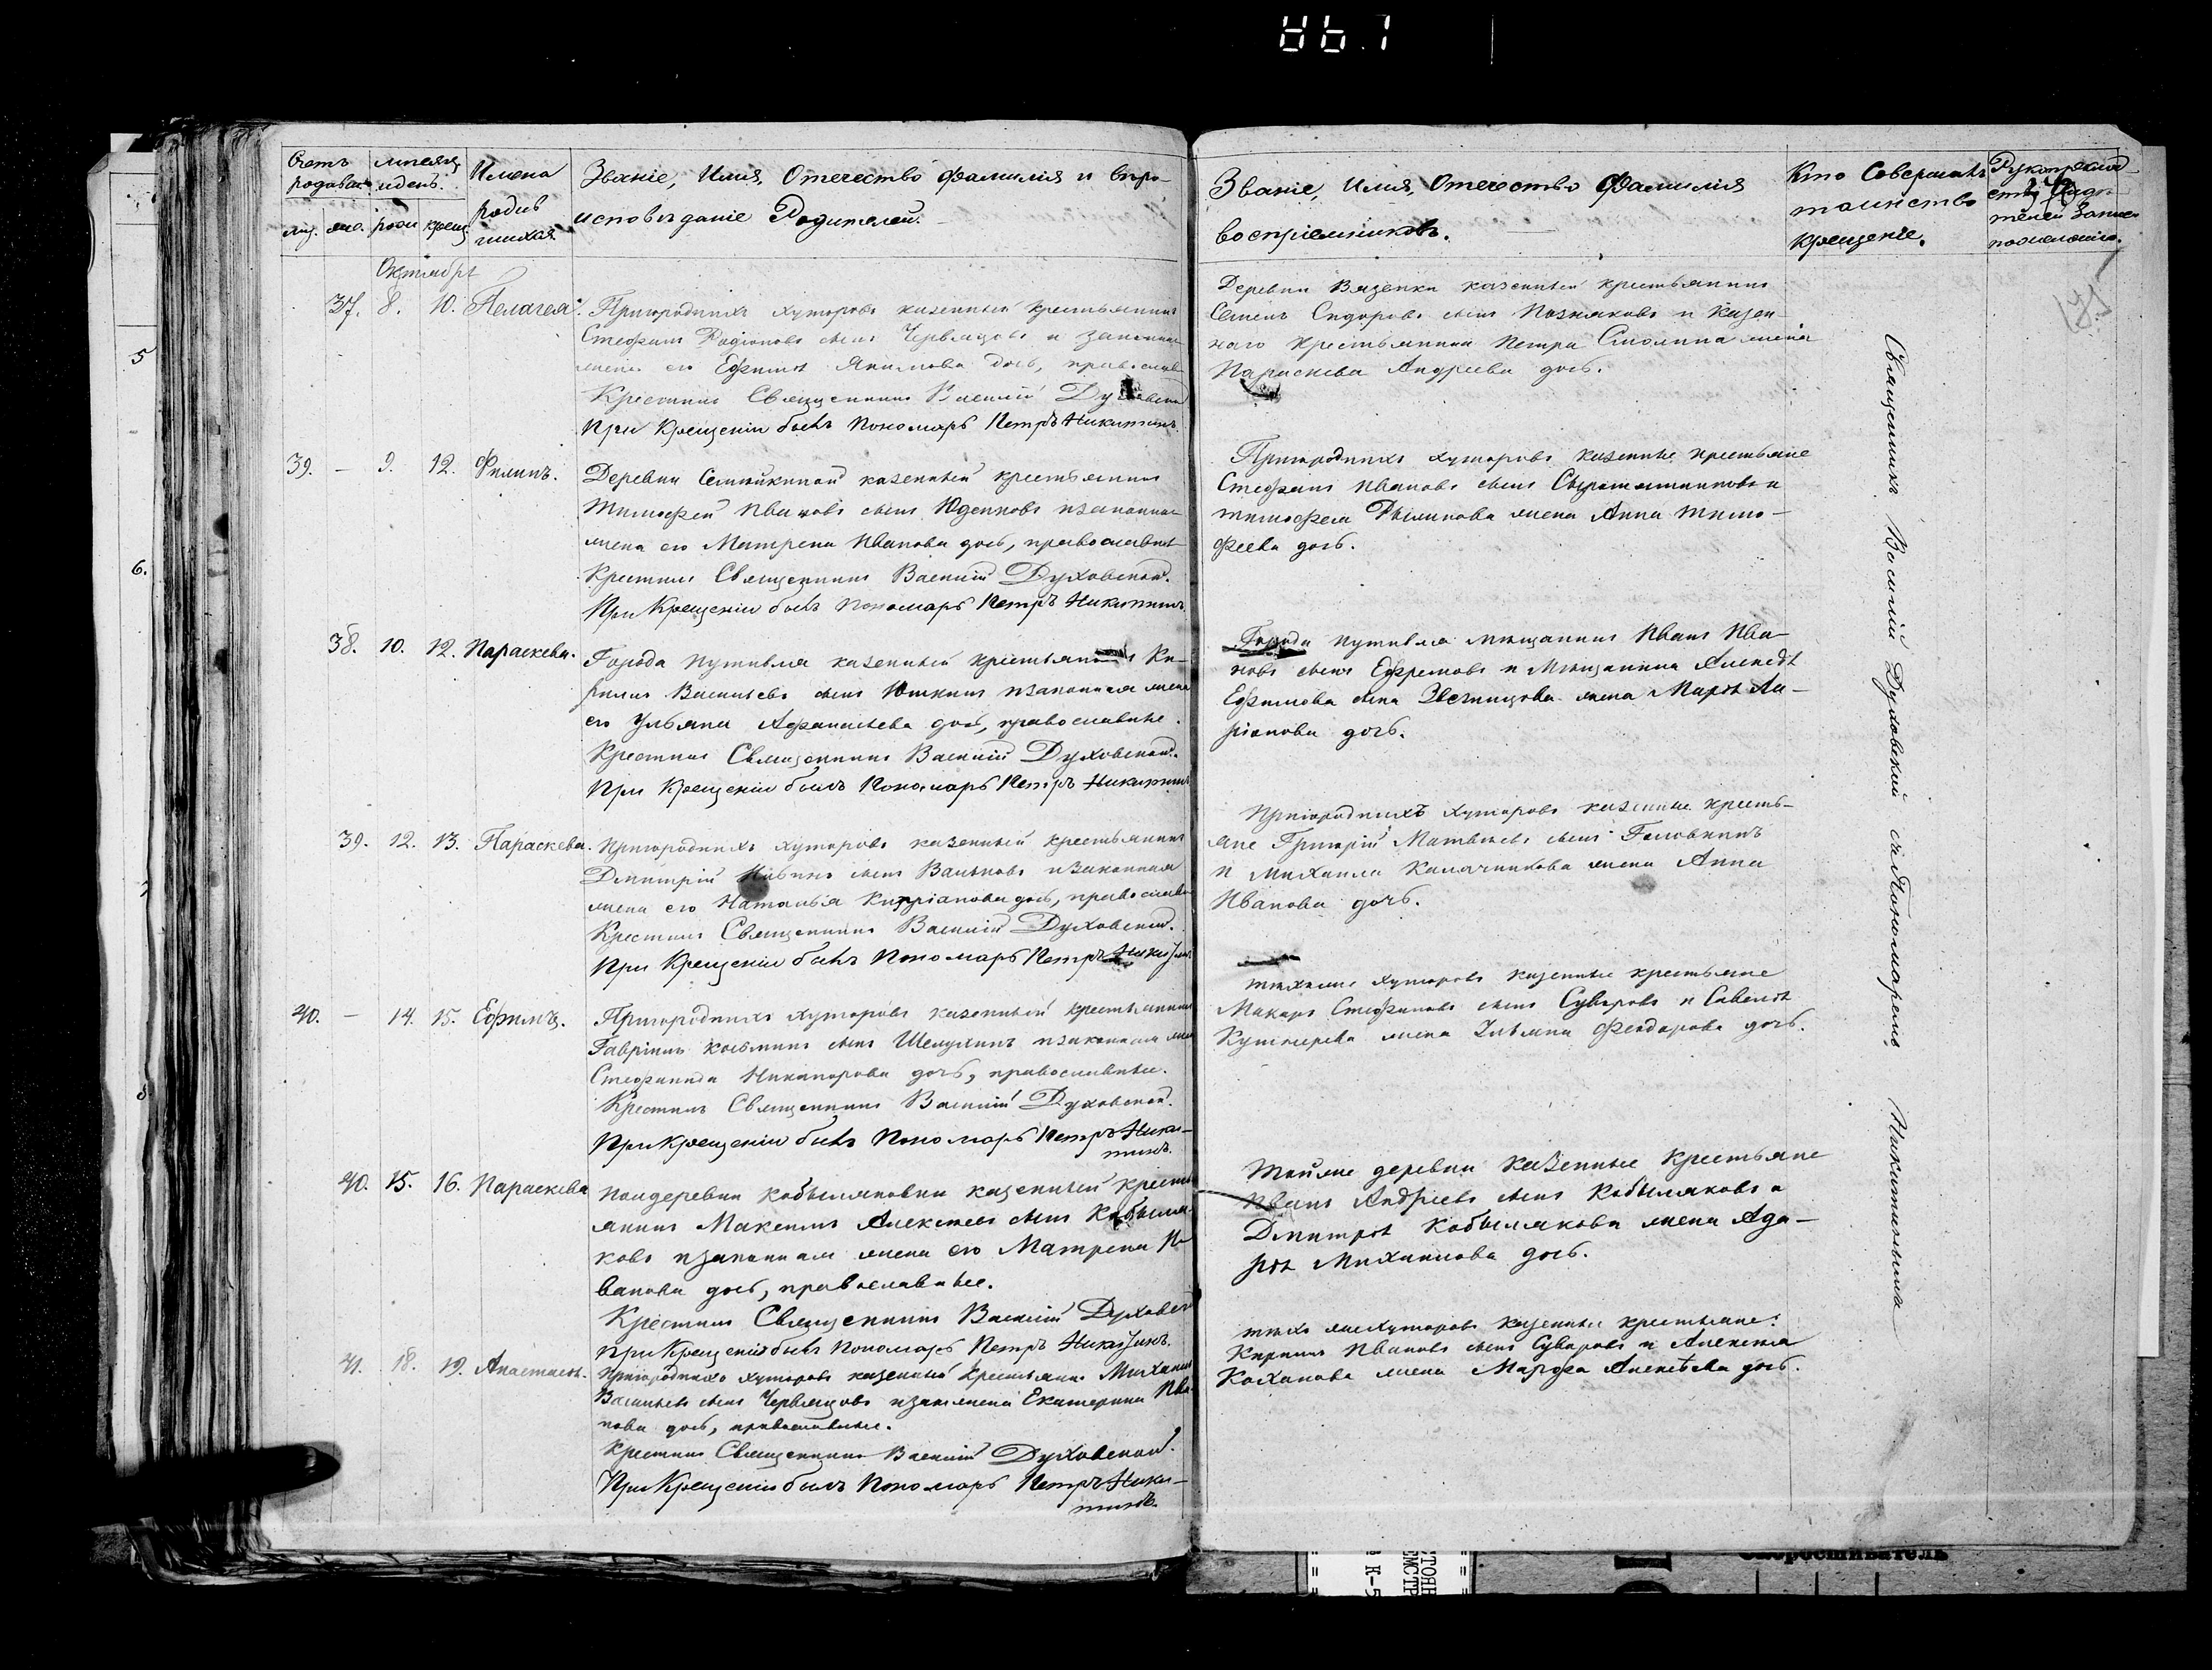 Счетъ
родовш
мѣсяцъ
и день.
муж. же. рожд крещ
Имена
родив
шихся
Званіе, Имя, Отчество Фамилія и Вѣро-
исповѣданіе Родителей.
Званіе, Имя, Отчество Фамилія
воспріемниковъ.
Кто Совершалъ
таинство
крещенія.
Рукоприклад
ство
Запись
по желанію.
Октябрь
37. 8. 10. Пелагея.
Пригородныхъ хуторовъ казенный крестьянинъ
Стефанъ Родіоновъ сынъ Червяцовъ и законная
жена его Ефимія Якимова дочь, православ
Крестилъ Священникъ Василій Духовской
При Крещеніи былъ Пономарь Петръ Никитинъ.
Деревни Вязенки казенный крестьянинъ
Семенъ Сидоровъ сынъ Позняковъ и казен-
наго крестьянина Петра Смолина жена
Параскева Андреева дочь.
39. – 9. 12. Филипъ.
Деревни казенный крестьянинъ
Тимофей Ивановъ сынъ Юденковъ и законная
жена его Матрена Иванова дочь, православные
Крестилъ Священникъ Василій Духовской.
При Крещеніи былъ Пономарь Петръ Никитинъ.
Пригородныхъ хуторовъ казенные крестьяне
Стефанъ Ивановъ сынъ Сыромятниковъ и
Тимофея жена Анна Тимо-
феева дочь.
38. 10. 12. Параскева.
Города Путивля казенный крестьянинъ Ки-
рилъ Васильевъ сынъ Юшкинъ и законная жена
его Ульяна Афанасьева дочь, православные.
Крестилъ Священникъ Василій Духовской.
При Крещеніи былъ Пономарь Петръ Никитинъ
Города Путивля мѣщанинъ Иванъ Ива-
новъ сынъ Ефремовъ и Мѣщанина Алексѣя
Ефимова сына жена Марія Ла-
ріонова дочь.
39. 12. 13. Параскева.
Пригородныхъ хуторовъ казенный крестьянинъ
Дмитрій сынъ Ваньковъ и законная
жена его Наталья Кипріанова дочь, православн
Крестилъ Священникъ Василій Духовской.
При Крещеніи былъ Пономарь Петръ Никитинъ
Пригородныхъ хуторовъ казенные кресть-
яне Григорій Матвѣевъ сынъ Головкинъ
и Михаила Калачникова жена Анна
Иванова дочь.
40. – 14. 15. Ефимъ.
Пригородныхъ хуторовъ казенный крестьянинъ
Гавріилъ Косьминъ сынъ Шелухинъ и законная жена
Стефанида Никанорова дочь, православные.
Крестилъ Священникъ Василій Духовской.
При Крещеніи былъ Пономарь Петръ Ники-
тинъ.
тѣхже хуторовъ казенные крестьяне
Макаръ Стефановъ сынъ Суворовъ и Савелія
жена Ульяна Феодорова дочь.
40. 15. 16. Параскева
деревни Кобыляковки казенный кресть
янинъ Максимъ Алексѣевъ сынъ Кобыля
ковъ и законная жена его Матрена И-
ванова дочь, православные.
Крестилъ Священникъ Василій Духовской
При Крещеніи былъ Пономарь Петръ Никитинъ.
Тойже деревни казенные крестьяне
Иванъ Андреевъ сынъ Кобыляковъ и
Дмитрія Кобылякова жена Ада-
рія Михаилова дочь.
41. 18. 19. Анастасія.
Пригородныхъ хуторовъ казенный крестьянинъ Михаилъ
Васильевъ сынъ Червяцовъ и зак жена Екатерина Ива
нова дочь, православные.
Крестилъ Священникъ Василій Духовской.
При Крещеніи былъ Пономарь Петръ Ники-
тинъ.
тѣхъ же хуторовъ казенные крестьяне:
Кирилъ Ивановъ сынъ Суворовъ и Алексѣя
Коханова жена Марфа Алексѣева дочь.
Священникъ Василій Духовской съ Пономаремъ Никитинымъ
175
5
6.